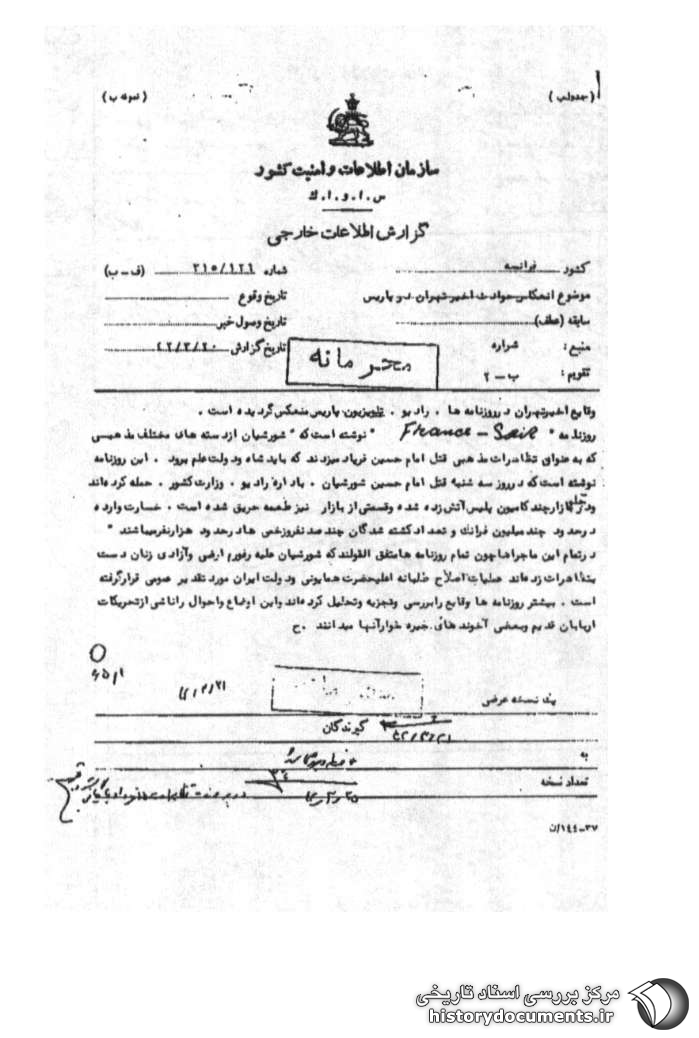 (جدولب) (نمونه ب)
سازمان اطلاعات و امنیت کشور
س . ا . و . ا . ك
گزارش اطلاعات خارجی
کشور فرانسه شماره ۳۱۵/۱۲۶ (ف - ب)
موضوع انعکاس حوادث اخیر تهران در پاریس تاریخ وقوع
سابقه (عطف) تاریخ وصول خبر
منبع : شراره تاریخ گزارش ۴۲/۳/۲۰
محرمانه
تقویم : ب - ۲
وقایع اخیر تهران در روزنامه ها ، رادیو ، تلویزیون پاریس منعکس گردیده است .
روزنامه " France - Soir " نوشته است که " شورشیان از دسته های مختلف مذهبی
که به عنوای تظاهرات مذهبی قتل امام حسین فریاد میزدند که باید شاه و دولت علم برود . این روزنامه
نوشته است که در روز سه شنبه قتل امام حسین شورشیان ، باداره رادیو ، وزارت کشور ، حمله کرده اند
ودر جلو بازار چند کامیون پلیس آتش زده شده و قسمتی از بازار نیز طعمه حریق شده است . خسارت وارده
در حدود چند میلیون فرانك و تعداد کشته شدگان چند صد نفر و زخمی ها در حدود هزار نفر میباشند "
در تمام این ماجراها چون تمام روزنامه ها متفق القولند که شورشیان علیه رفورم ارضی و آزادی زنان دست
بتظاهرات زده اند عملیات اصلاح طلبانه اعلیحضرت همایونی و دولت ایران مورد تقدیر عمومی قرار گرفته
است . بیشتر روزنامه ها وقایع را بررسی و تجزیه و تحلیل کرده اند و این اوضاع و احوال را ناشی از تحریکات
اربابان قدیم و بعضی آخوندهای جیره خوار آنها میدانند . ح
یك نسخه عرضی
گیرندگان
به
تعداد نسخه
۳۷-۱۴۴/ن
مرکز بررسی اسناد تاریخی
historydocuments.ir